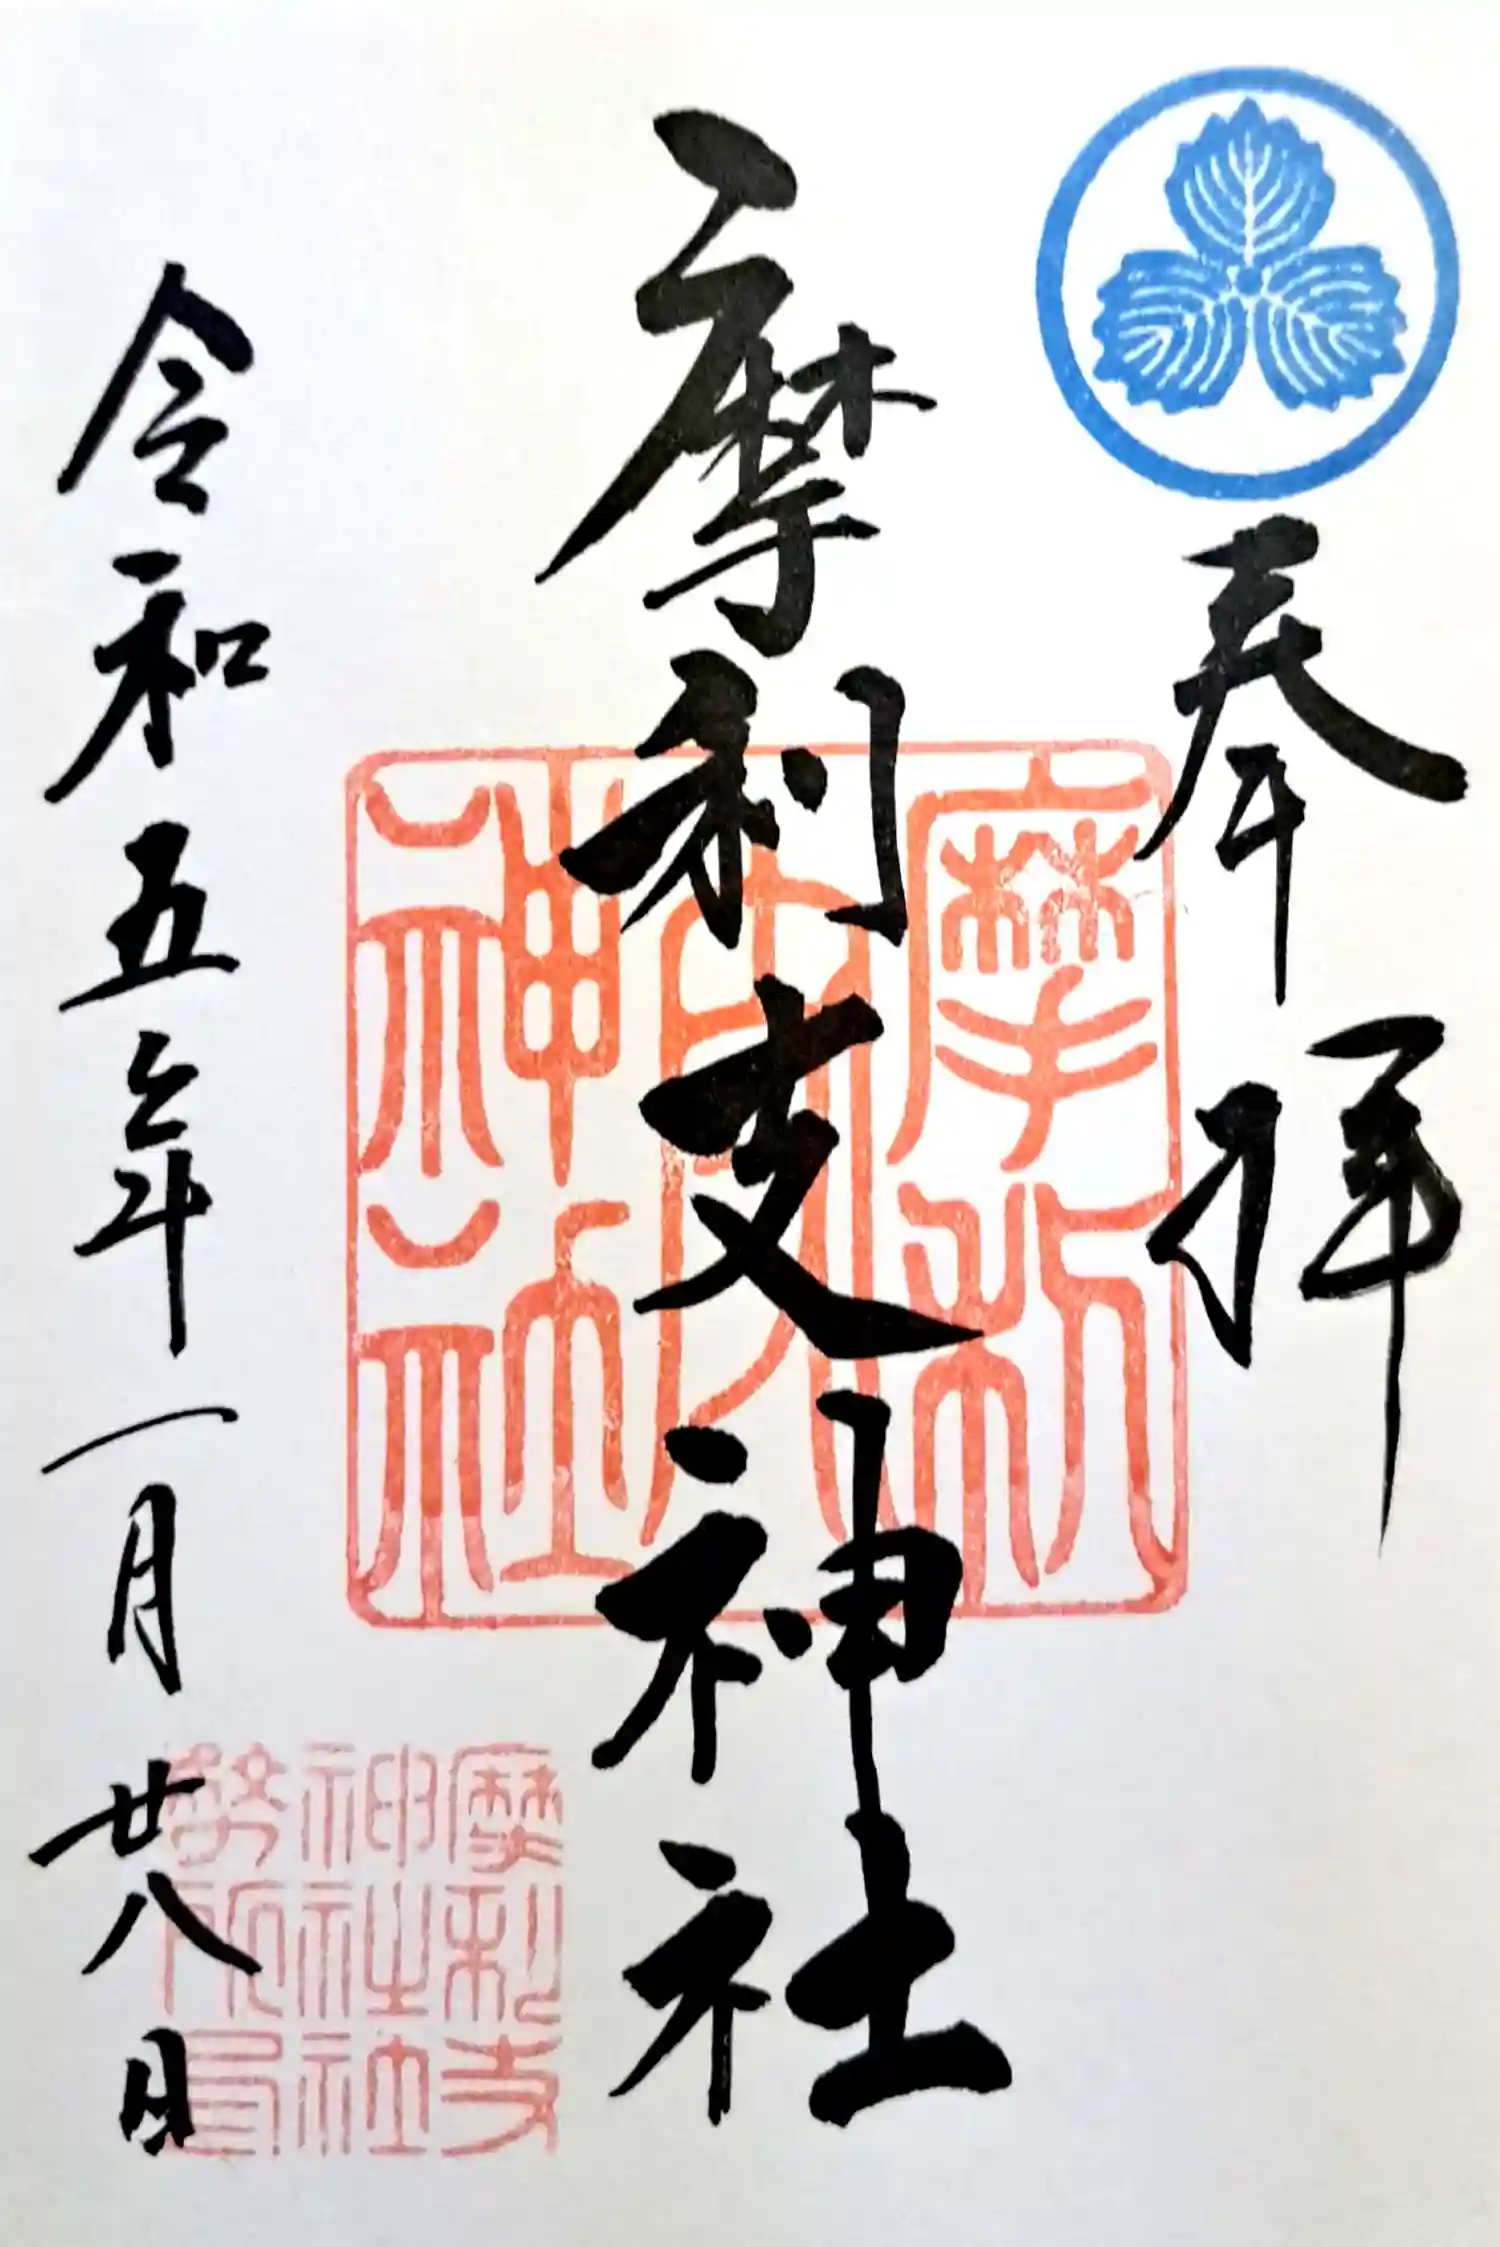 奉拝
摩利支神社
摩利支神社
摩利支
神社社
務所
令和五年一月廿八日